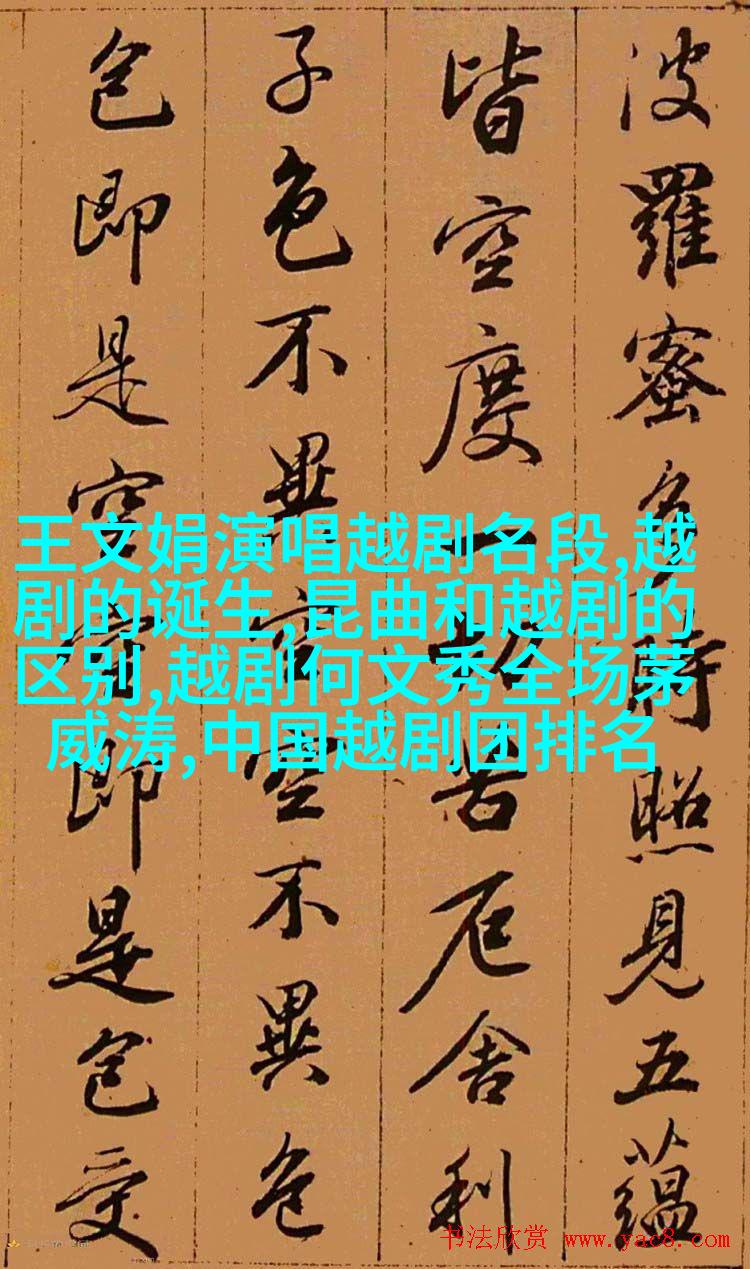 波羅蜜多時照見五蘊
皆空度一切苦厄舍利
子色不異空空不異色
色即是空空即是色受
王文娟演唱越剧名段,越
剧的诞生,昆曲和越剧的
区别,越剧何文秀全场茅
威涛,中国越剧团排名
书法欣赏 www.yac8.com